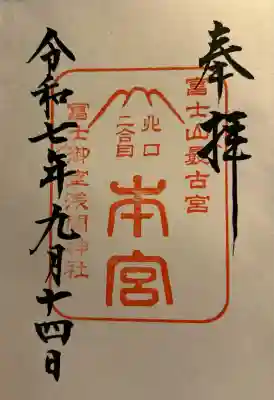 奉拝
富士山最古宮
北口
二合目
本宮
冨士御室浅間神社
令和七年九月十四日